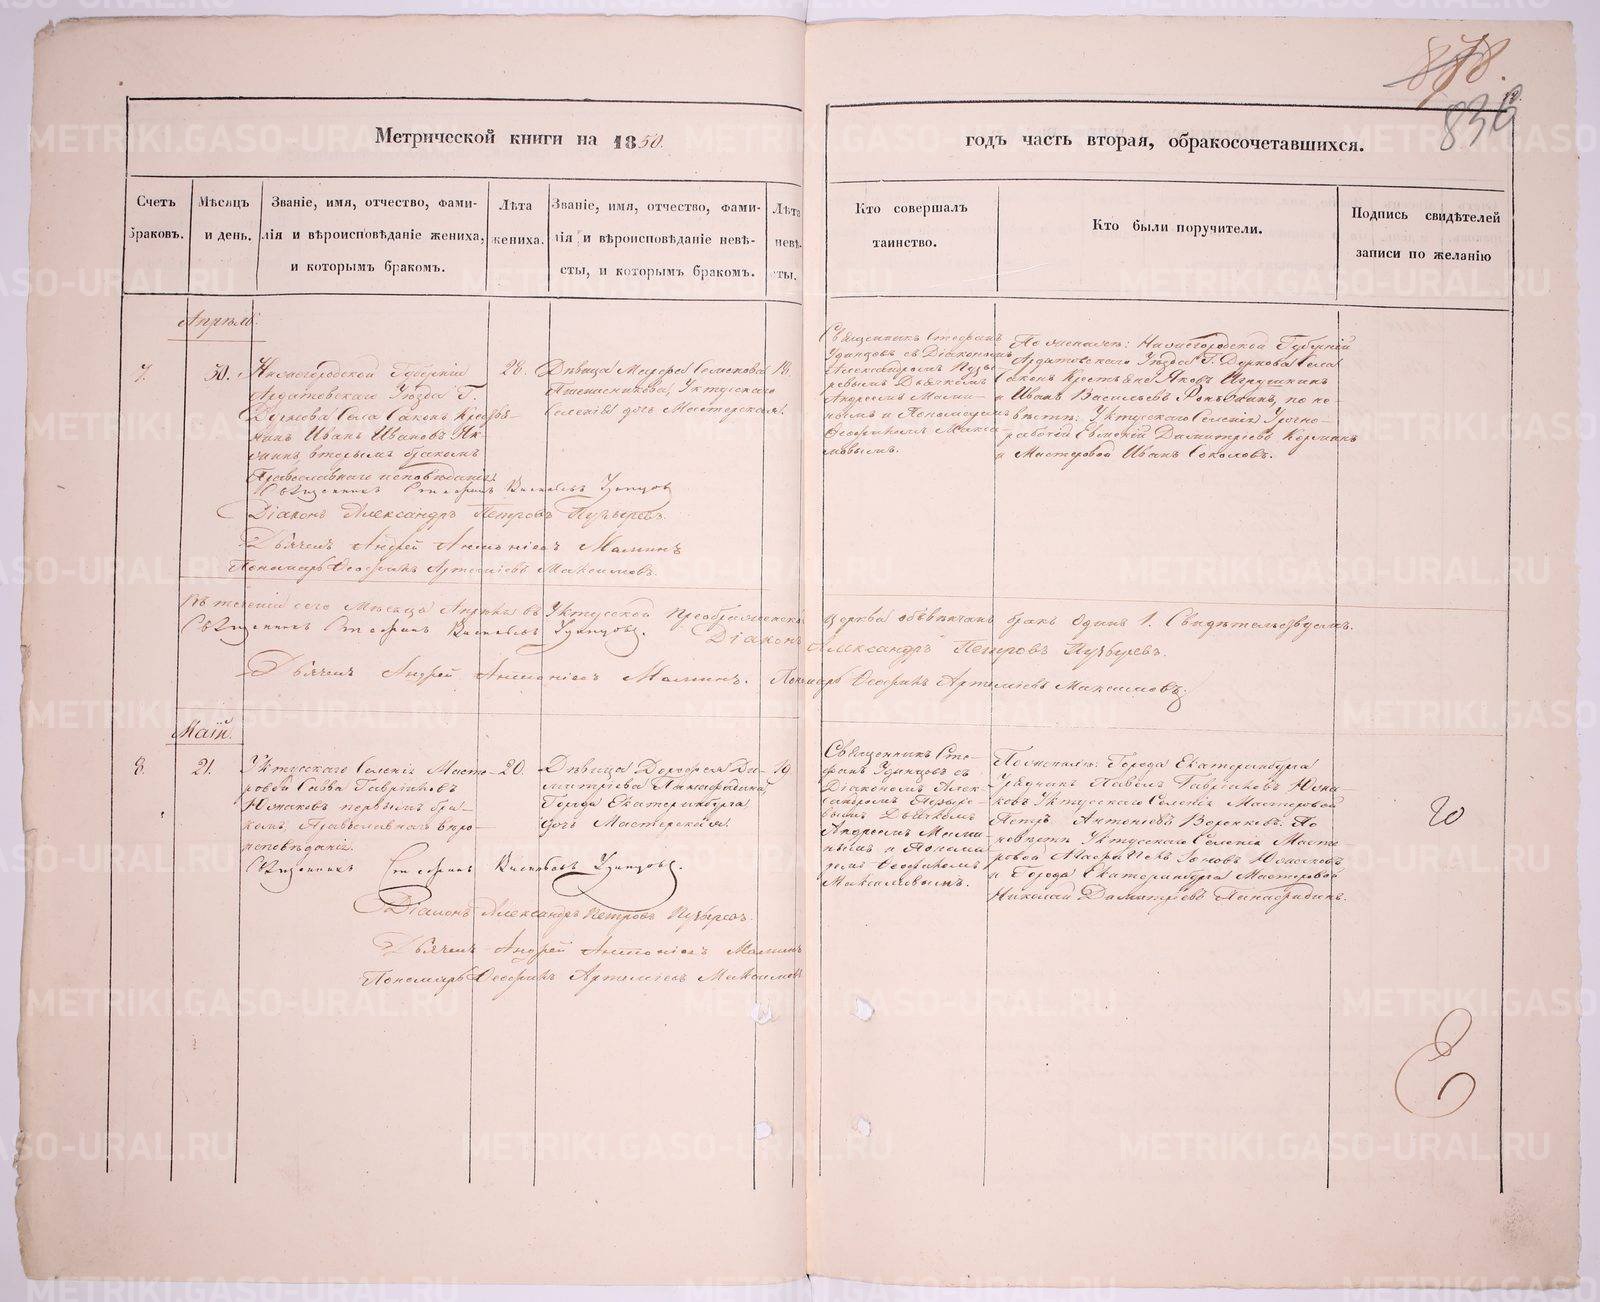 878.
836
Метрической книги на 1850.
годъ часть вторая, обракосочетавшихся.
Счетъ браковъ.
Мѣсяцъ и день.
Званіе, имя, отчество, фами-
лія и вѣроисповѣданіе жениха,
и которымъ бракомъ.
Лѣта жениха.
Званіе, имя, отчество, фами-
лія и вѣроисповѣданіе невѣ-
сты, и которымъ бракомъ.
Лѣта невѣ-
сты.
Кто совершалъ
таинство.
Кто были поручители.
Подпись свидѣтелей
записи по желанію
Апрѣль.
7.
30.
Нижегородской Губерніи
Ардатовскаго Уѣзда Г.
Села Саконъ Кресть-
нинъ Иванъ Ивановъ Як-
вторымъ бракомъ
Православнаго исповѣданія.
28.
Дѣвица Марѳа Семенова
Уктусскаго
Селенія дочь Мастерская.
18.
Священникъ Стефанъ
Удинцовъ съ Діакономъ
Александромъ Пузы-
ревымъ Дьячкомъ
Андреемъ Мами-
нымъ и Пономаремъ
Ѳеофаномъ Макси-
мовымъ.
По женихѣ: Нижегородской Губерніи
Ардатовскаго Уѣзда Г. Села
Саконъ Крестьяне Яковъ
и Иванъ Васильевъ по не-
вѣстѣ: Уктусскаго Селенія Урочно-
рабочій Евмений Дмитріевъ
и Мастеровой Иванъ Соколовъ.
Священникъ Стефанъ Васильевъ Удинцовъ
Діаконъ Александръ Петровъ Пузыревъ.
Дьячекъ Андрей Антоніевъ Маминъ
Пономарь Ѳеофанъ Артеміевъ Максимовъ.
Въ теченіи сего Мѣсяца Апрѣля въ Уктусской Преображенской церкви обвѣнчанъ бракъ одинъ 1. Свидѣтельствуемъ.
Священникъ Стефанъ Васильевъ Удинцовъ. Діаконъ Александръ Петровъ Пузыревъ.
Дьячекъ Андрей Антоніевъ Маминъ. Пономарь Ѳеофанъ Артеміевъ Максимовъ.
Маій.
8.
21.
Уктусскаго Селенія Масте-
ровой Савва Гавриловъ
Южаковъ первымъ бра-
комъ, Православнаго вѣро-
исповѣданія.
20.
Дѣвица Дорофея Ди-
митріева Панафидина,
Города Екатеринбурга
дочь Мастерская.
19
Священникъ Сте-
фанъ Удинцовъ съ
Діакономъ Алек-
сандромъ Пузыре-
вымъ Дьячкомъ
Андреемъ Мами-
нымъ и Понома-
ремъ Ѳеофаномъ
Максимовымъ.
По женихѣ: Города Екатеринбурга
Урядникъ Павелъ Гавриловъ Южа-
ковъ Уктусскаго Селенія Мастеровой
Петръ Антоніевъ Воронковъ. По
невѣстѣ Уктусскаго Селенія Масте-
ровой Южаковъ
и Города Екатеринбурга Мастеровой
Николай Димитріевъ Панафидинъ.
20
Священникъ Стефанъ Васильевъ Удинцовъ.
Діаконъ Александръ Петровъ Пузыревъ.
Дьячекъ Андрей Антоніевъ Маминъ
Пономарь Ѳеофанъ Артеміевъ Максимовъ
Е
METRIKI.GASO-URAL.RU